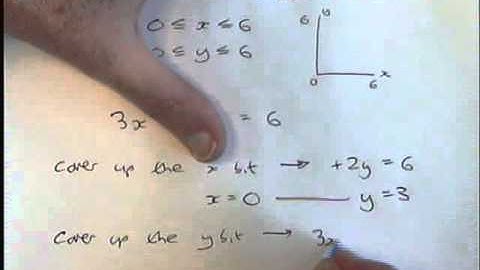 0 ≤ x ≤ 6
≤ y ≤ 6
6
0
x
6
3x = 6
Cover up the x bit → +2y = 6
x = 0 y = 3
Cover up the y bit → 3x